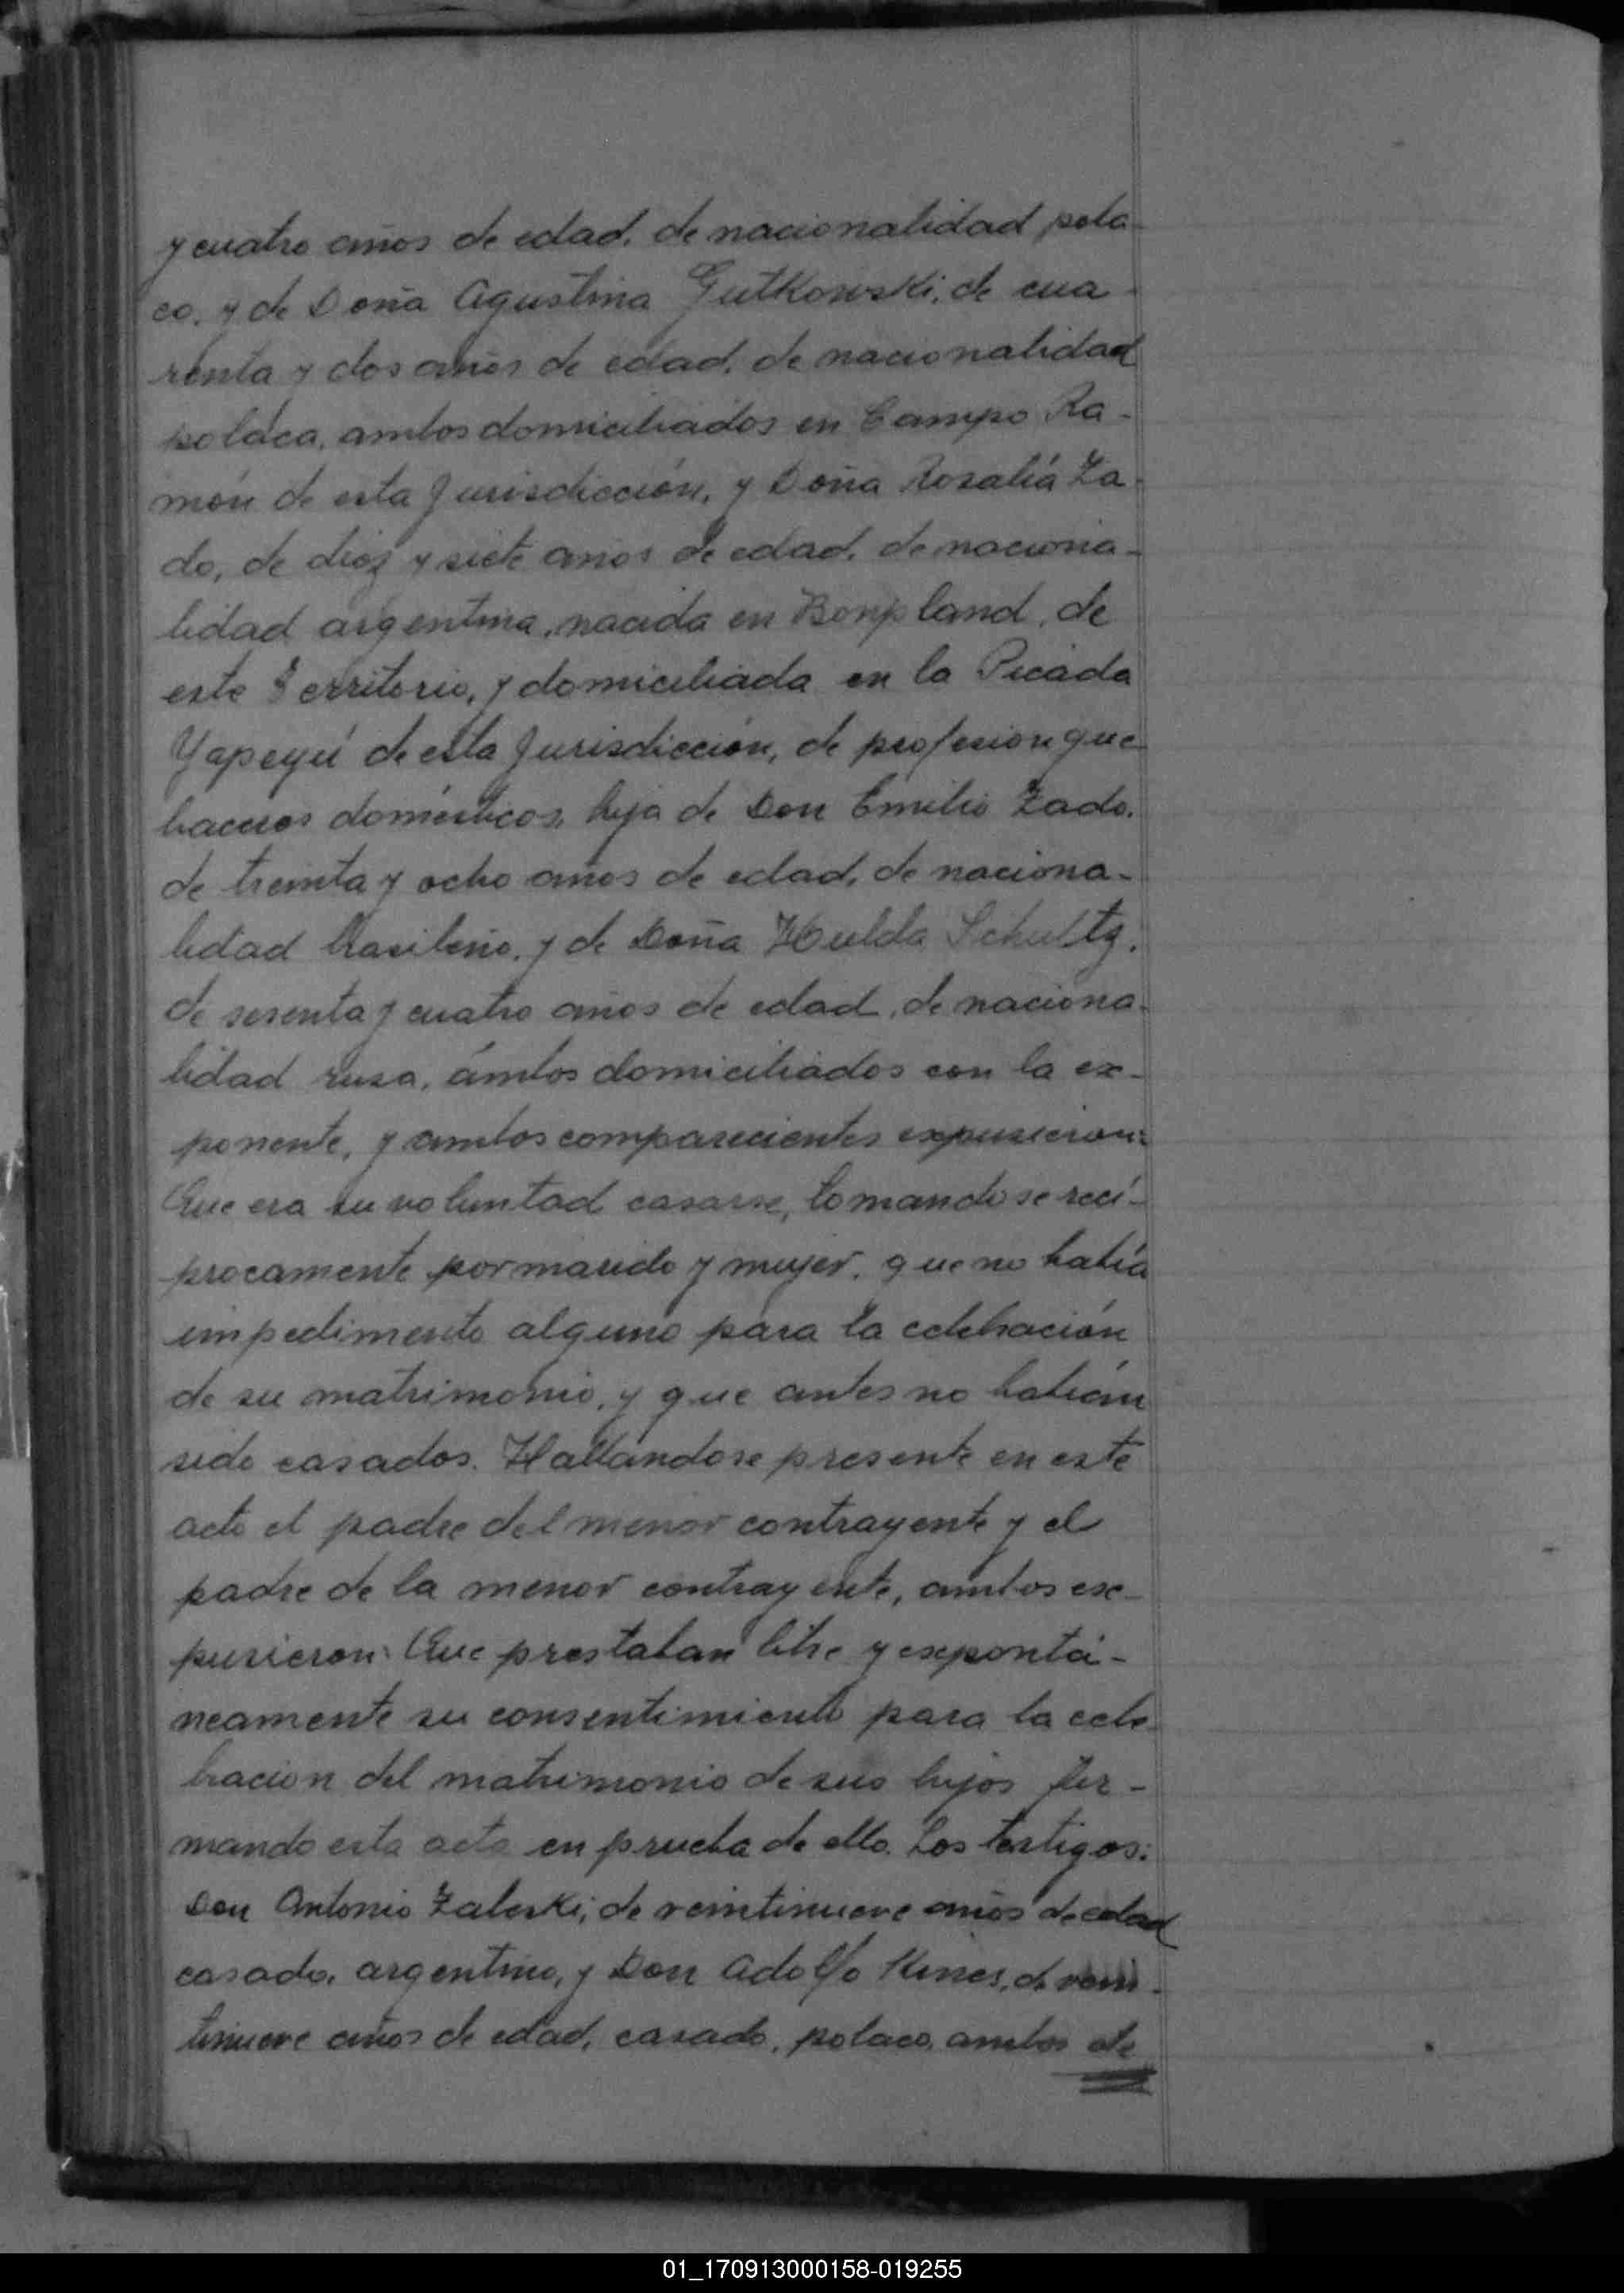 y cuatro años de edad, de nacionalidad pola-
co, y de Doña Agustina Gutkowski, de cua-
renta y dos años de edad, de nacionalidad
poláca, ambos domiciliados en Campo Ra-
món de esta Jurisdicción, y Doña Rosalía Za-
do, de diez y siete años de edad, de naciona-
lidad argentina, nacida en Bonpland, de
este Territorio, y domiciliada en la Picada
Yapeyú de esta Jurisdicción, de profesion que-
haceres domésticos, hija de Don Emilio Zado,
de treinta y ocho años de edad, de naciona-
lidad brasileño, y de Doña Hulda Schultz,
de sesenta y cuatro años de edad, de naciona-
lidad rusa, ámbos domiciliados con la ex-
ponente, y ambos comparecientes expusieron:
Que era su voluntad casarse, tomandose recí-
procamente por marido y mujer, que no había
impedimento alguno para la celebración
de su matrimonio, y que antes no habían
sido casados. Hallándose presente en este
acto el padre del menor contrayente y el
padre de la menor contrayente, ambos ex-
pusieron: Que prestaban libre y expontá-
neamente su consentimiento para la cele-
bracion del matrimonio de sus hijos fir-
mando esta acta en prueba de ello. Los testigos:
Don Antonio Zaleski, de veintinueve años de edad
casado, argentino, y Don Adolfo Kines, de vein-
tinueve años de edad, casado, polaco, ambos de
01_170913000158-019255